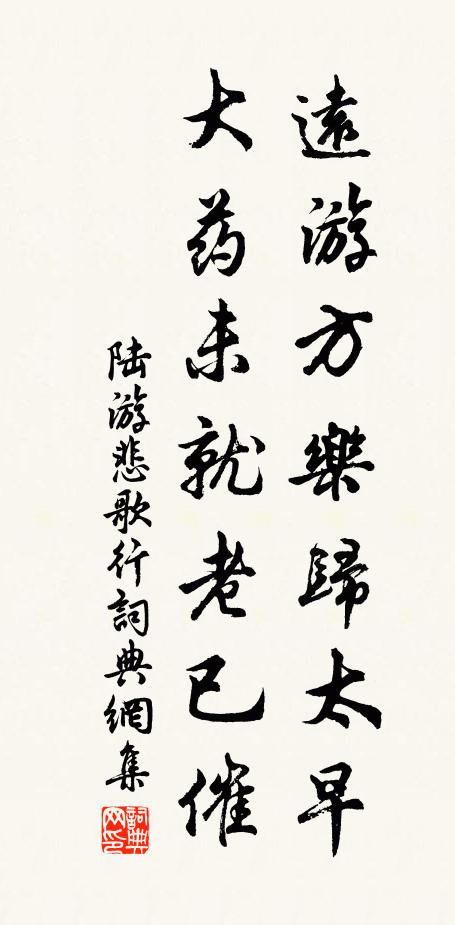 遠游方樂歸太早
大药未就老已催
陆游悲歌行詞典網集
詞典网印